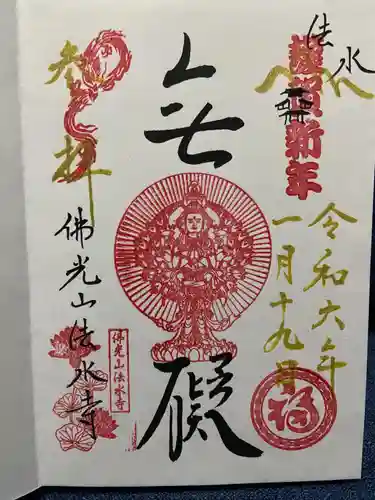 法水
謹賀新年
令和六年
一月十九日
無
礙
参拝
佛光山法水寺
佛光山法水寺
福